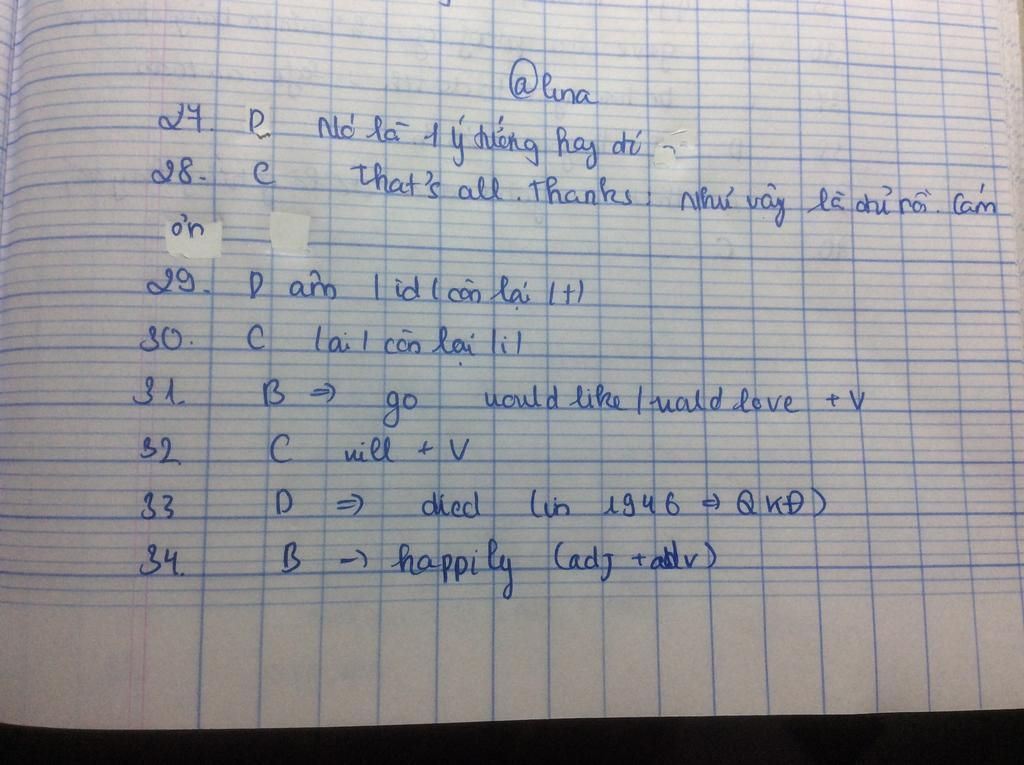 @luna
27. D Nó là 1 ý tưởng hay đí
28. C That's all. Thanks: Như vậy là đủ rồi. Cám
ơn
29. D âm /id/ còn lại /t/
30. C /ai/ còn lại /i/
31. B => go would like / would love + V
32 C will + V
33 D => died (in 1946 => QKĐ)
34. B -> happily (adj + adv)